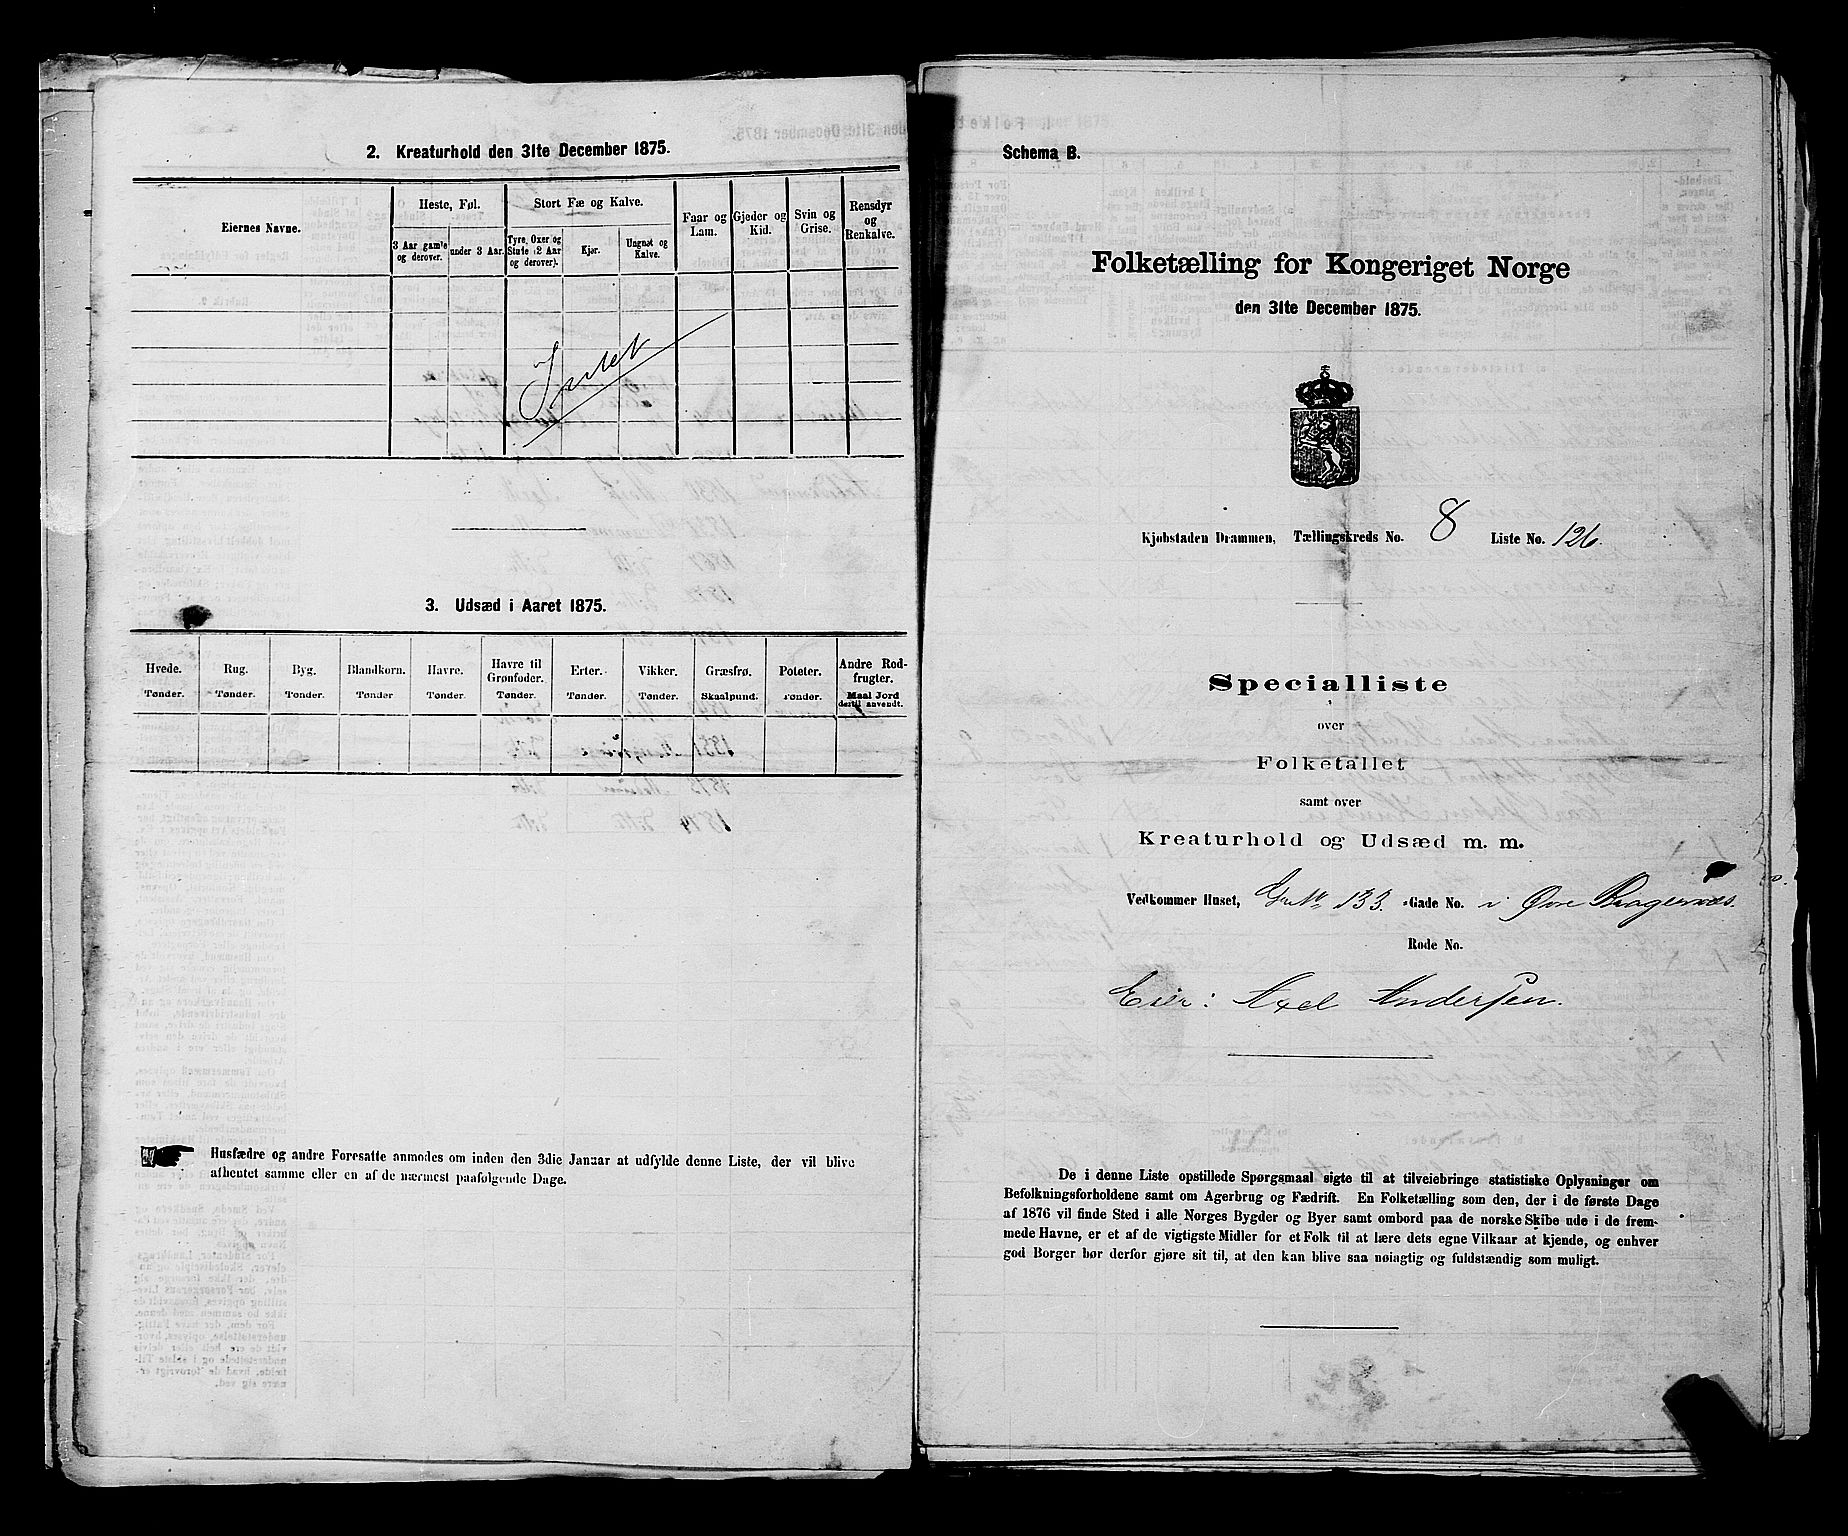 2. Kreaturhold den 31te December 1875.
Eiernes Navne.
Heste, Føl.
Stort Fæ og Kalve.
Faar og Lam.
Gjeder og Kid.
Svin og Grise.
Rensdyr og Renkalve.
3 Aar gamle og derover.
under 3 Aar.
Tyre, Oxer og Stude (2 Aar og derover).
Kjør.
Ungnøt og Kalve.
Intet
3. Udsæd i Aaret 1875.
Hvede. Rug. Byg. Blandkorn. Havre. Havre til Grønfoder. Erter. Vikker. Græsfrø. Poteter. Andre Rodfrugter.
Tønder. Tønder. Tønder. Tønder Tønder. Tønder. Tønder. Tønder. Skaalpund. Tønder. Maal Jord dertil anvendt.
Husfædre og andre Foresatte anmodes om inden den 3die Januar at udfylde denne Liste, der vil blive
afhentet samme eller en af de nærmest paafølgende Dage.
Schema B.
Folketælling for Kongeriget Norge
den 31te December 1875.
Kjøbstaden Drammen, Tællingskreds No. 8 Liste No. 126.
Specialliste
over
Folketallet
samt over
Kreaturhold og Udsæd m. m.
Vedkommer Huset, Gr No 133. Gade No. i Øvre Bragernæs.
Rode No.
Eier: Axel Andersen.
De i denne Liste opstillede Spørgsmaal sigte til at tilveiebringe statistiske Oplysninger om
Befolkningsforholdene samt om Agerbrug og Fædrift. En Folketælling som den, der i de første Dage
af 1876 vil finde Sted i alle Norges Bygder og Byer samt ombord paa de norske Skibe ude i de frem-
mede Havne, er et af de vigtigste Midler for et Folk til at lære dets egne Vilkaar at kjende, og enhver
god Borger bør derfor gjøre sit til, at den kan blive saa nøiagtig og fuldstændig som muligt.